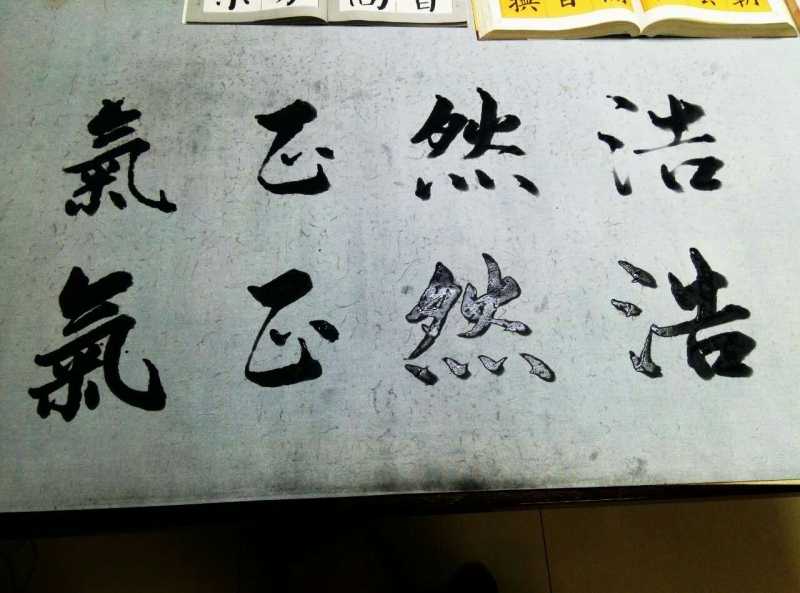 浩然正氣
浩然正氣